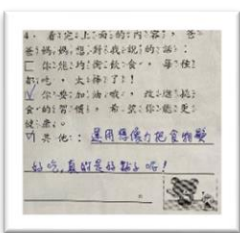 4. 看完上面的內容,爸
爸媽媽想對我說的話:
□你能均衡飲食,每樣
都吃,太棒了!
☑你要加油哦,改進飲
食的習慣,希望你能更
健康。
☑其他:運用想像力把食物變
好吃,真的是好點子喔!